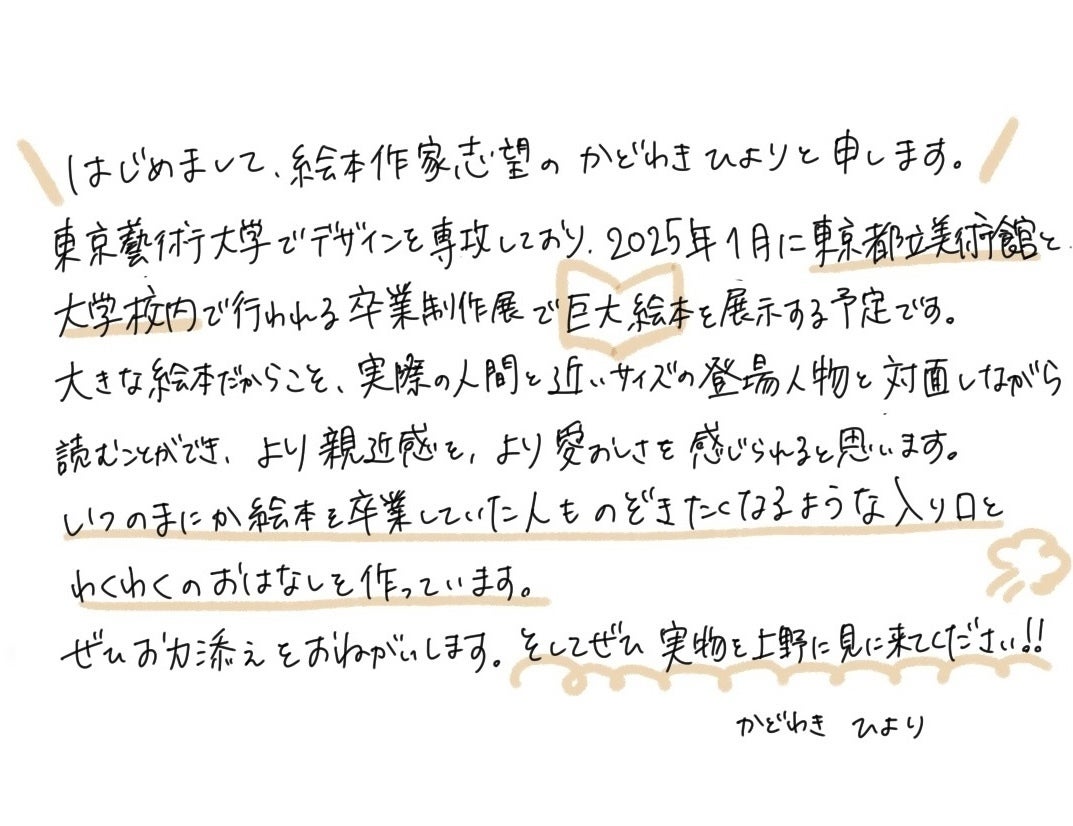 はじめまして、絵本作家志望の かどわきひよりと申します。
東京藝術大学でデザインを専攻しており、2025年1月に東京都立美術館と
大学校内で行われる卒業制作展で巨大絵本を展示する予定です。
大きな絵本だからこそ、実際の人間と近いサイズの登場人物と対面しながら
読むことができ、より親近感を、より愛おしさを感じられると思います。
いつのまにか絵本を卒業していた人ものぞきたくなるような入り口と
わくわくのおはなしを作っています。
ぜひお力添えをおねがいします。そしてぜひ 実物を上野に見に来てください!!
かどわき ひより